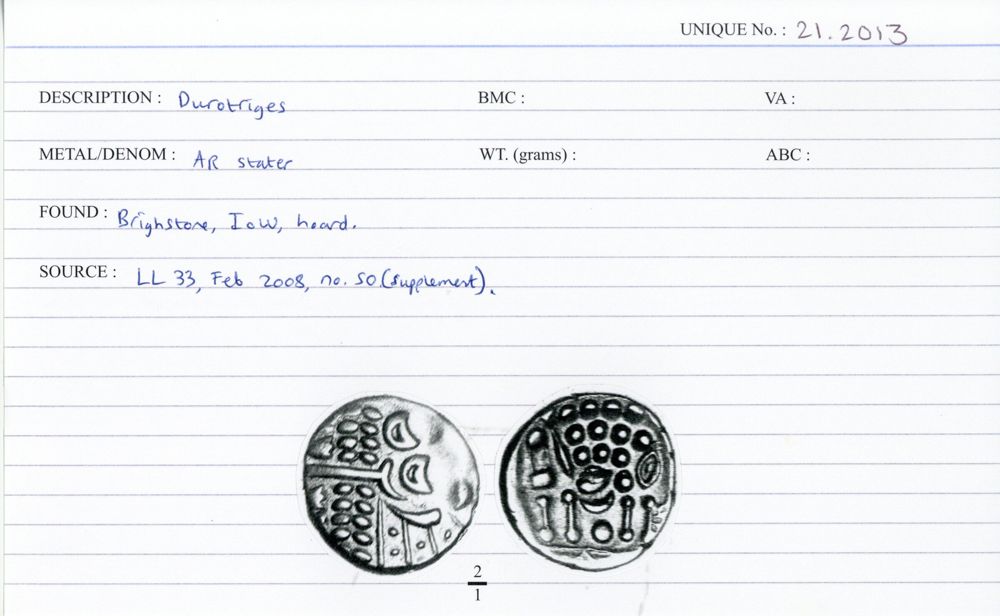 UNIQUE No. : 21.2013
DESCRIPTION : Durotriges BMC : VA :
METAL/DENOM : AR stater WT. (grams) : ABC :
FOUND : Brighstone, IoW, hoard.
SOURCE : LL 33, Feb 2008, no. 50 (supplement).
2
1